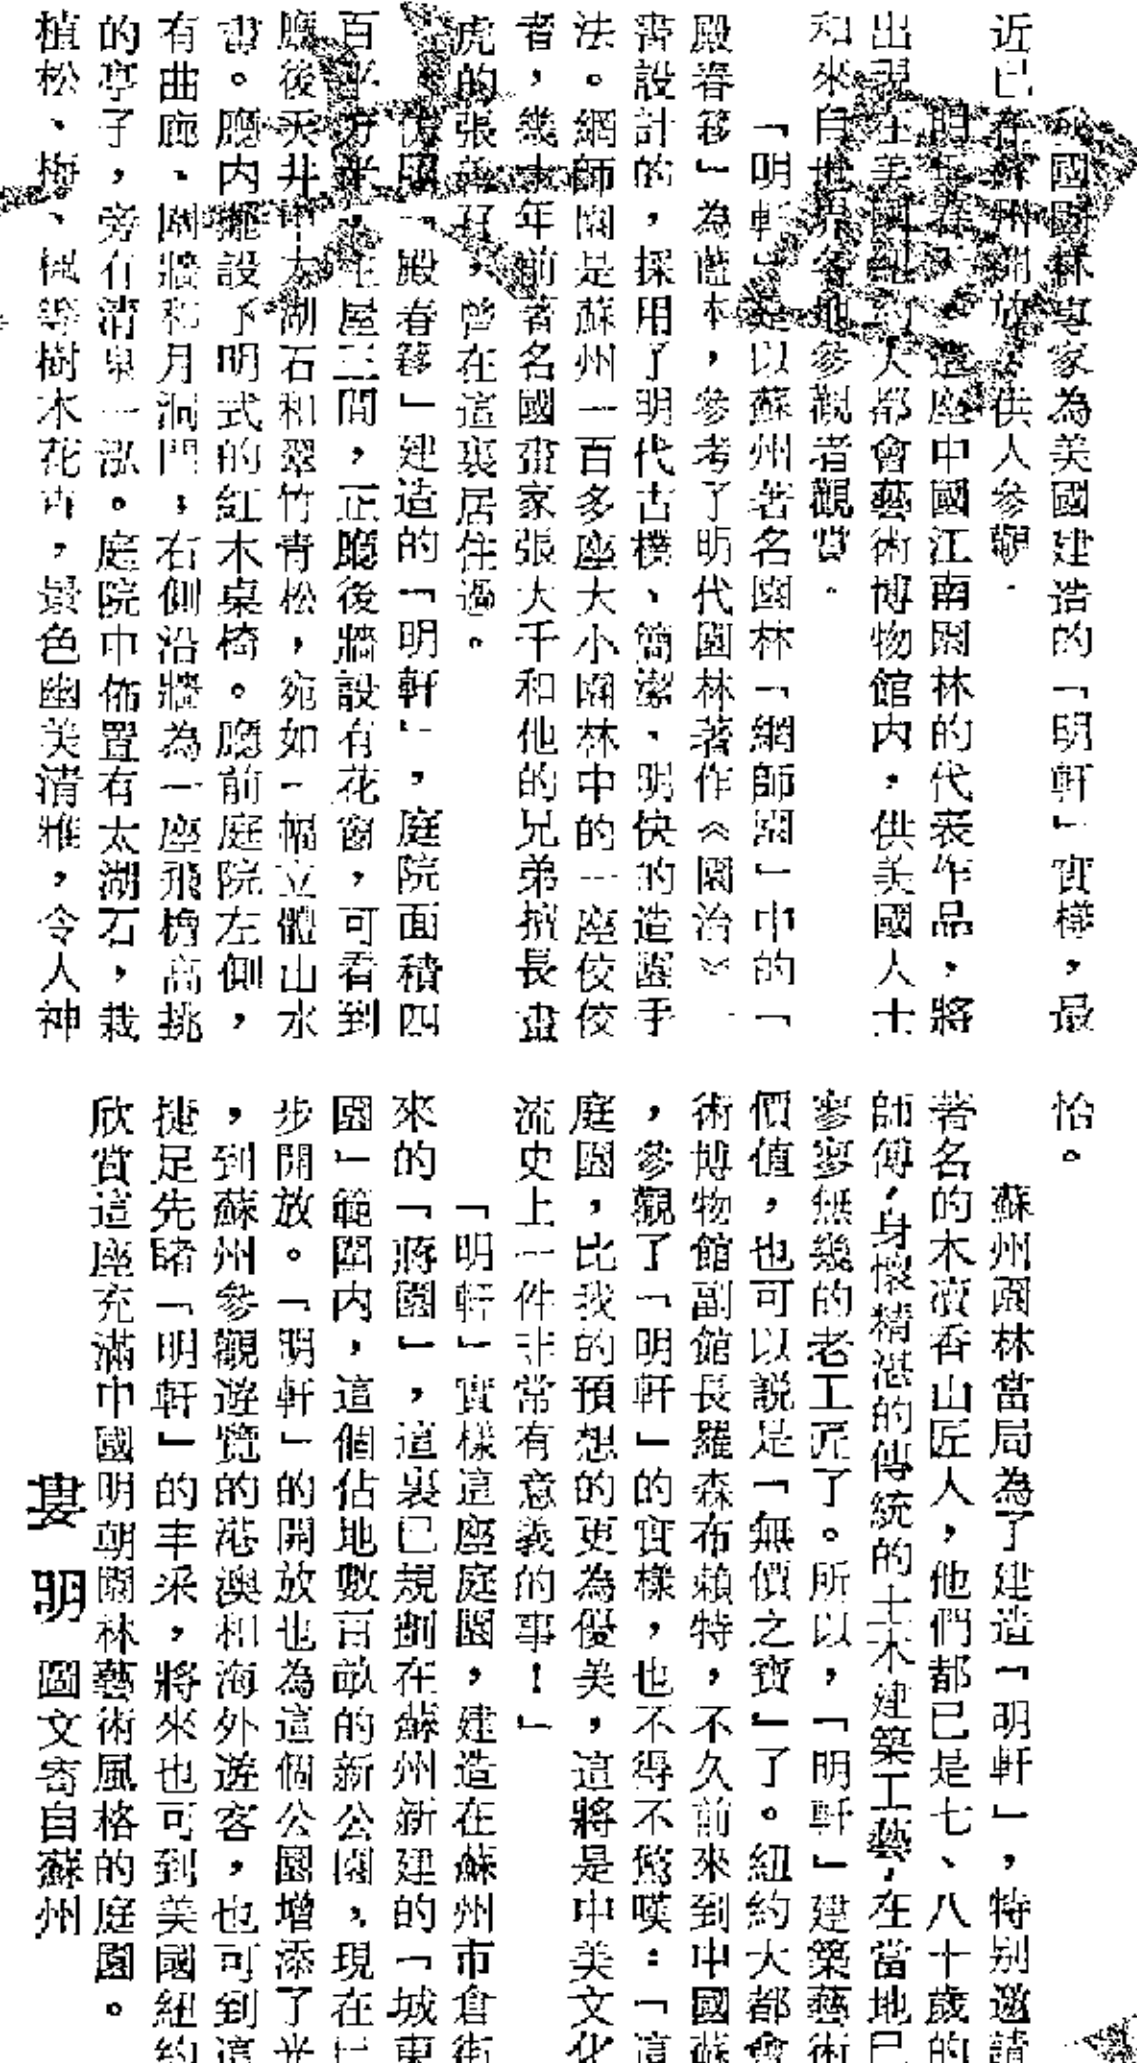 我國園林專家為美國建造的「明軒」實樣，最
近已在蘇州開放，供人參觀．
明年春天，這座中國江南園林的代表作品，將
出現在美國紐約大都會藝術博物館內，供美國人士
和來自世界各地參觀者觀賞．
「明軒」是以蘇州著名園林「網師園」中的「
殿春簃」為藍本，參考了明代園林著作《園冶》
書設計的，採用了明代古樸、簡潔、明快的造園手
法。網師園是蘇州一百多座大小園林中的一座佼佼
者，幾十年前著名國畫家張大千和他的兄弟擅長畫
虎的張善孖，曾在這裏居住過。
仿照「殿春簃」建造的「明軒」，庭院面積四
百平方米，主屋三間，正廳後牆設有花窗，可看到
廳後天井中太湖石和翠竹青松，宛如一幅立體山水
畫。廳內擺設了明式的紅木桌椅。廳前庭院左側，
有曲廊、園牆和月洞門；右側沿牆為一座飛檐高挑
的亭子，旁有清泉一泓。庭院中佈置有太湖石，栽
植松、梅、楓等樹木花卉，景色幽美清雅，令人神
怡。
蘇州園林當局為了建造「明軒」，特別邀請
著名的木瀆香山匠人，他們都已是七、八十歲的
師傅，身懷精湛的傳統的土木建築工藝，在當地已
寥寥無幾的老工匠了。所以，「明軒」建築藝術
價值，也可以說是「無價之寶」了。紐約大都會
術博物館副館長羅森布賴特，不久前來到中國蘇
，參觀了「明軒」的實樣，也不得不驚嘆：「這
庭園，比我的預想的更為優美，這將是中美文化
流史上一件非常有意義的事！」
「明軒」實樣這座庭園，建造在蘇州市倉街
來的「蔣園」，這裏已規劃在蘇州新建的「城東
園」範圍內，這個佔地數百畝的新公園，現在已
步開放。「明軒」的開放也為這個公園增添了光
，到蘇州參觀遊覽的港澳和海外遊客，也可到這
捷足先睹「明軒」的丰采，將來也可到美國紐約
欣賞這座充滿中國明朝園林藝術風格的庭園。
婁明 圖文寄自蘇州